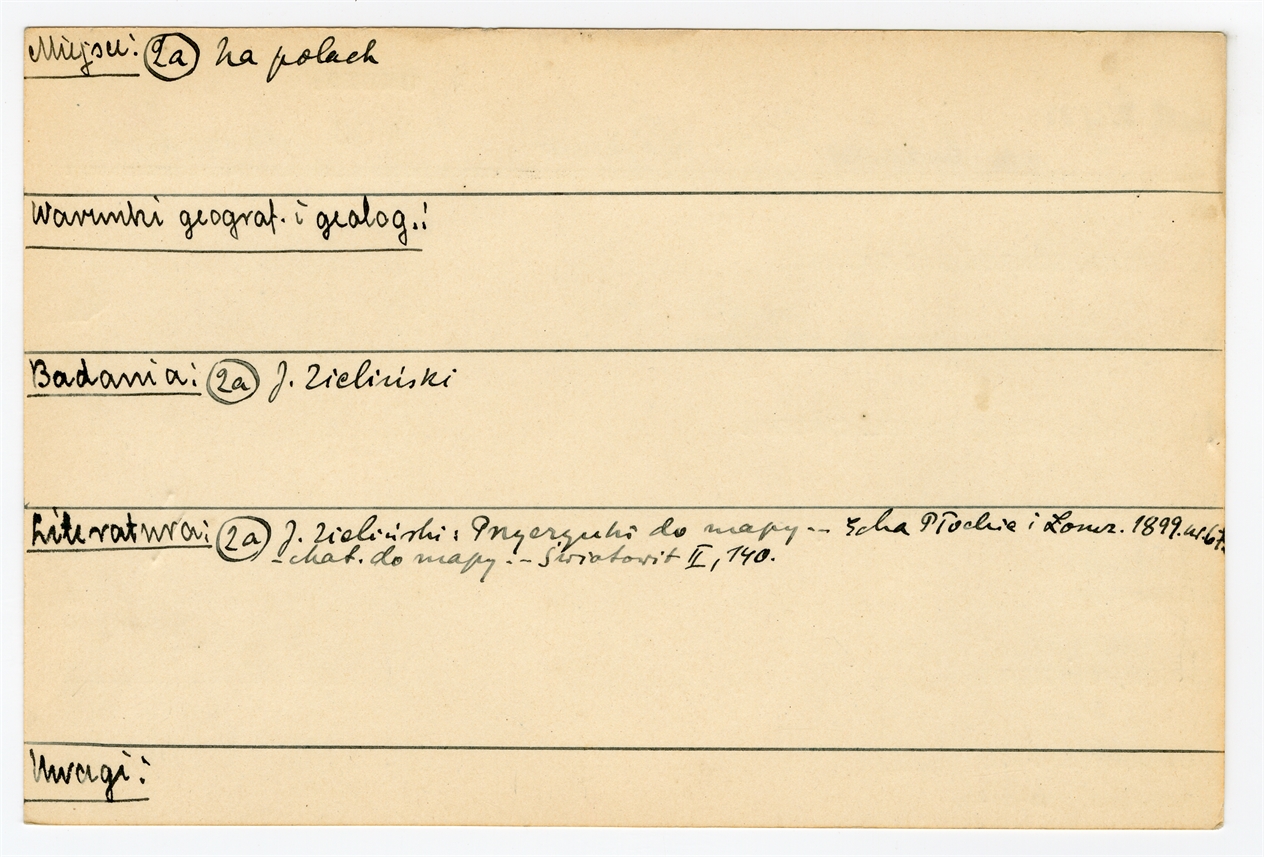 Miejsce: 2a na polach
Warunki geograf. i geolog.:
Badania: 2a J. Zieliński
Literatura: 2a J. Zieliński: Przyczynki do mapy – Echa Płockie i Łomż. 1899. nr. 67.
– Mat. do mapy. – Światowit II, 140.
Uwagi: